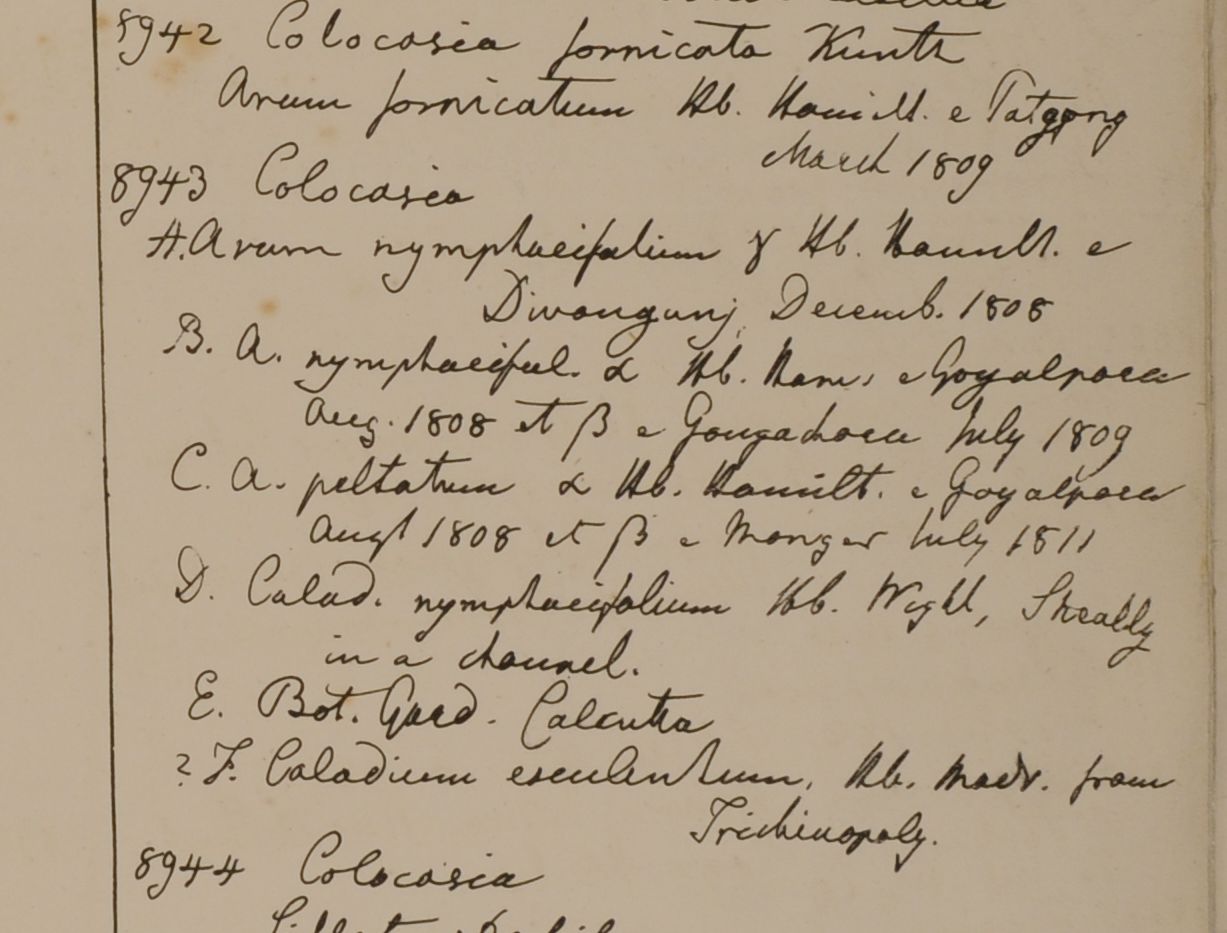 8942 Colocasia fornicata Kunth
Arum fornicatum Hb. Hamilt. e Tatgong
March 1809
8943 Colocasia
A. Arum nymphaeifolium γ Hb. Hamilt. e
Divangunj Decemb. 1808
B. A. nymphaeifol. α Hb. Ham. e Goyalpara
Aug. 1808 et β e Gongachora July 1809
C. A. peltatum α Hb. Hamilt. e Goyalpara
Augt 1808 et β e Monger July 1811
D. Calad. nymphaeifolium Hb. Wight, Shealdy
in a channel.
E. Bot. Gard. Calcutta
? F. Caladium esculentum, Hb. Madr. from
Trichinopoly.
8944 Colocasia